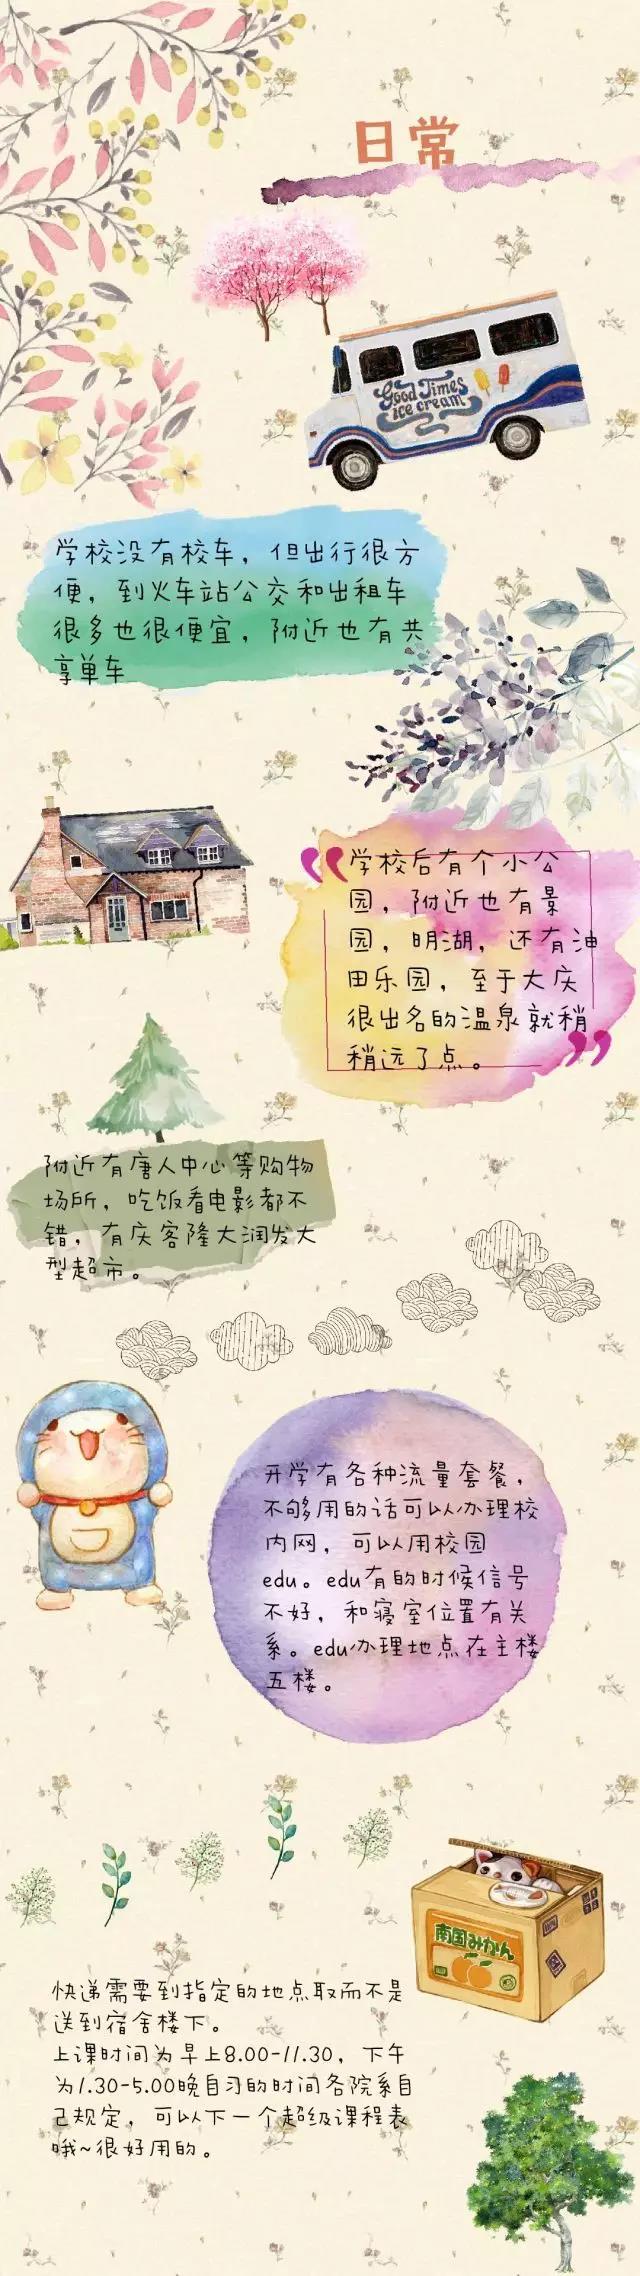 日常
Good Times
ice cream
学校没有校车，但出行很方
便，到火车站公交和出租车
很多也很便宜，附近也有共
享单车
学校后有个小公
园，附近也有景
园，明湖，还有油
田乐园，至于大庆
很出名的温泉就稍
稍远了点。
附近有唐人中心等购物
场所，吃饭看电影都不
错，有庆客隆大润发大
型超市。
开学有各种流量套餐，
不够用的话可以办理校
内网，可以用校园
edu。edu有的时候信号
不好，和寝室位置有关
系。edu办理地点在主楼
五楼。
南国みかん
快递需要到指定的地点取而不是
送到宿舍楼下。
上课时间为早上8.00-11.30，下午
为1.30-5.00晚自习的时间各院系自
己规定，可以下一个超级课程表
哦~很好用的。